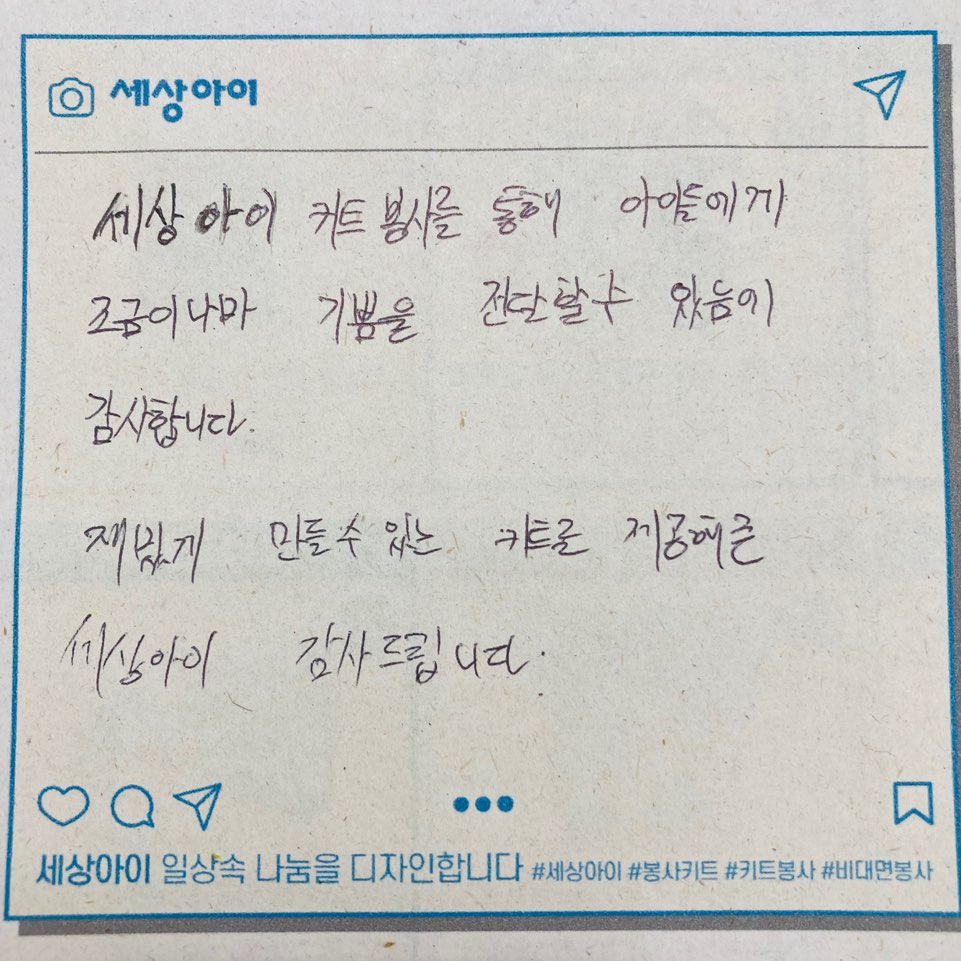 세상아이
세상아이 키트 봉사를 통해 아이들에게
조금이나마 기쁨을 전달할수 있음이
감사합니다.
재밌게 만들수 있는 키트로 제공해준
세상아이 감사드립니다.
세상아이 일상속 나눔을 디자인합니다 #세상아이 #봉사키트 #키트봉사 #비대면봉사